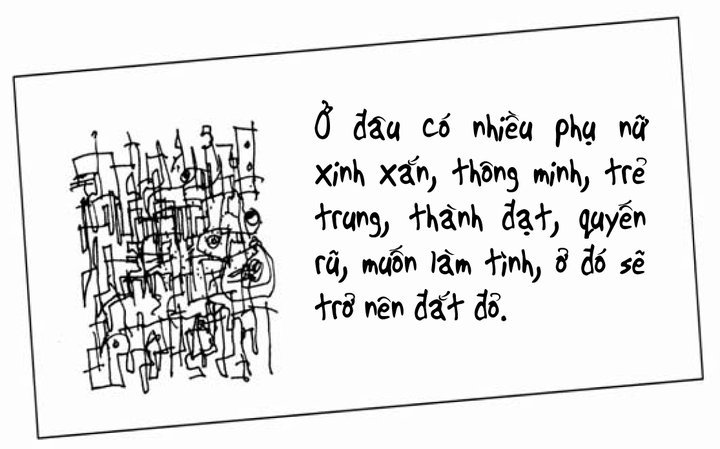 Ở đâu có nhiều phụ nữ
xinh xắn, thông minh, trẻ
trung, thành đạt, quyến
rũ, muốn làm tình, ở đó sẽ
trở nên đắt đỏ.